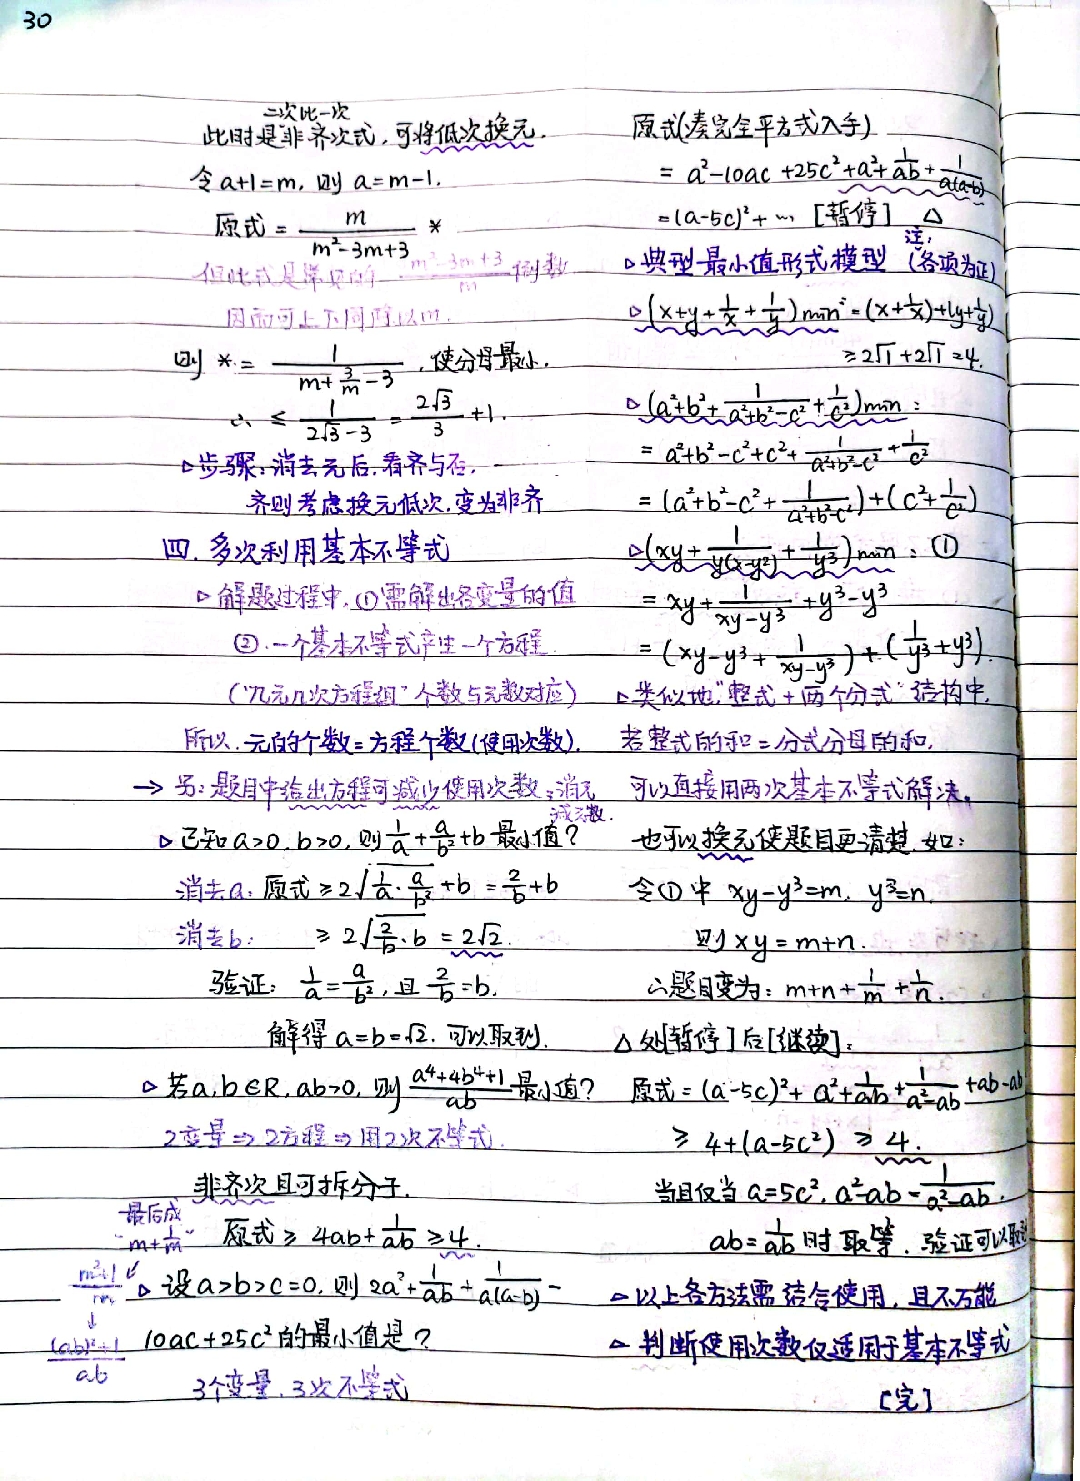 30
二次比一次
此时是非齐次式，可将低次换元.
令a+1=m，则 a=m-1.
原式 = m/(m²-3m+3) *
但此式是常见的 (m²-3m+3)/m 倒数
因而可上下同除以m.
则 * = 1/(m+3/m-3)，使分母最小.
∴ ≤ 1/(2√3-3) = 2√3/3 +1.
▷步骤：消去元后，看齐与否，
齐则考虑换元低次，变为非齐
四. 多次利用基本不等式
▷解题过程中，①需解出各变量的值
②. 一个基本不等式产生一个方程
（"几元几次方程组" 个数与元数对应）
所以，元的个数=方程个数(使用次数).
→ 另：题目中给出方程可减少使用次数；消元
减元数.
▷已知a>0, b>0, 则 1/a + a/b² + b 最小值？
消去a：原式 ≥ 2√(1/a · a/b²) + b = 2/b + b
消去b： ≥ 2√(2/b · b) = 2√2.
验证：1/a = a/b²，且 2/b = b,
解得 a=b=√2. 可以取到.
▷若a,b∈R, ab>0, 则 (a⁴+4b⁴+1)/ab 最小值？
2变量⇒2方程⇒用2次不等式.
非齐次且可拆分子.
最后成
"m+1/m"
原式 ≥ 4ab + 1/ab ≥ 4.
(m²+1)/m
↓
((ab)²+1)/ab
▷设a>b>c=0, 则 2a² + 1/ab + 1/a(a-b) -
10ac+25c² 的最小值是？
3个变量，3次不等式
原式(凑完全平方式入手)
= a²-10ac+25c²+a²+1/ab+1/a(a-b)
=(a-5c)²+ … [暂停] △
▷典型最小值形式模型 (注：各项为正)
▷(x+y+1/x+1/y)min：=(x+1/x)+(y+1/y)
≥2√1+2√1=4.
▷(a²+b²+1/(a²+b²-c²)+1/c²)min：
= a²+b²-c²+c²+1/(a²+b²-c²)+1/c²
= (a²+b²-c²+1/(a²+b²-c²))+(c²+1/c²)
▷(xy+1/y(x-y²)+1/y³)min：①
= xy+1/(xy-y³)+y³-y³
= (xy-y³+1/(xy-y³))+(1/y³+y³).
▷类似地，"整式+两个分式"结构中，
若整式的和=分式分母的和，
可以直接用两次基本不等式解决。
也可以换元使题目更清楚，如：
令①中 xy-y³=m, y³=n,
则 xy=m+n.
∴题目变为：m+n+1/m+1/n.
△处[暂停]后[继续]：
原式=(a-5c)²+a²+1/ab+1/(a²-ab)+ab-ab
≥ 4+(a-5c²) ≥ 4.
当且仅当 a=5c², a²-ab=1/(a²-ab),
ab=1/ab 时取等，验证可以取
▷以上各方法需结合使用，且不万能
▷判断使用次数仅适用于基本不等式
[完]